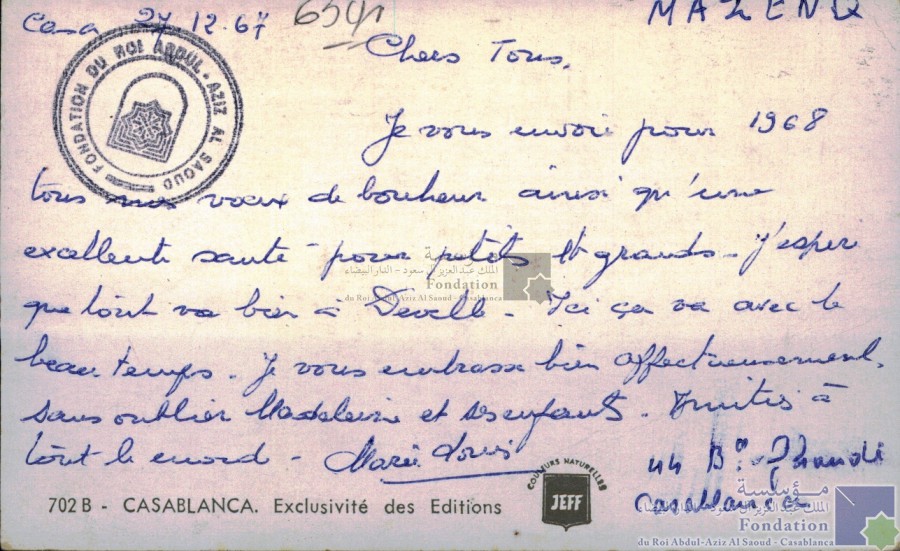 Casa 27.12.67
MAZENQ
Chers Tous,
Je vous envoie pour 1968
tous mes voeux de bonheur ainsi qu'une
excellente santé pour petits et grands - j'espere
que tout va bien à Deville - Ici ça va avec le
beau temps - Je vous embrasse bien affectueusement.
sans oublier Madeleine et ses enfants - Amitiés à
tout le
Marie Louis
44 Bd
Casablanca
FONDATION DU ROI ABDUL-AZIZ AL SAOUD
702 B - CASABLANCA. Exclusivité des Editions
COULEURS NATURELLES
JEFF
مؤسسة
الملك عبد العزيز آل سعود - الدار البيضاء
Fondation
du Roi Abdul-Aziz Al Saoud - Casablanca
مؤسسة
الملك عبد العزيز آل سعود - الدار البيضاء
Fondation
du Roi Abdul-Aziz Al Saoud - Casablanca